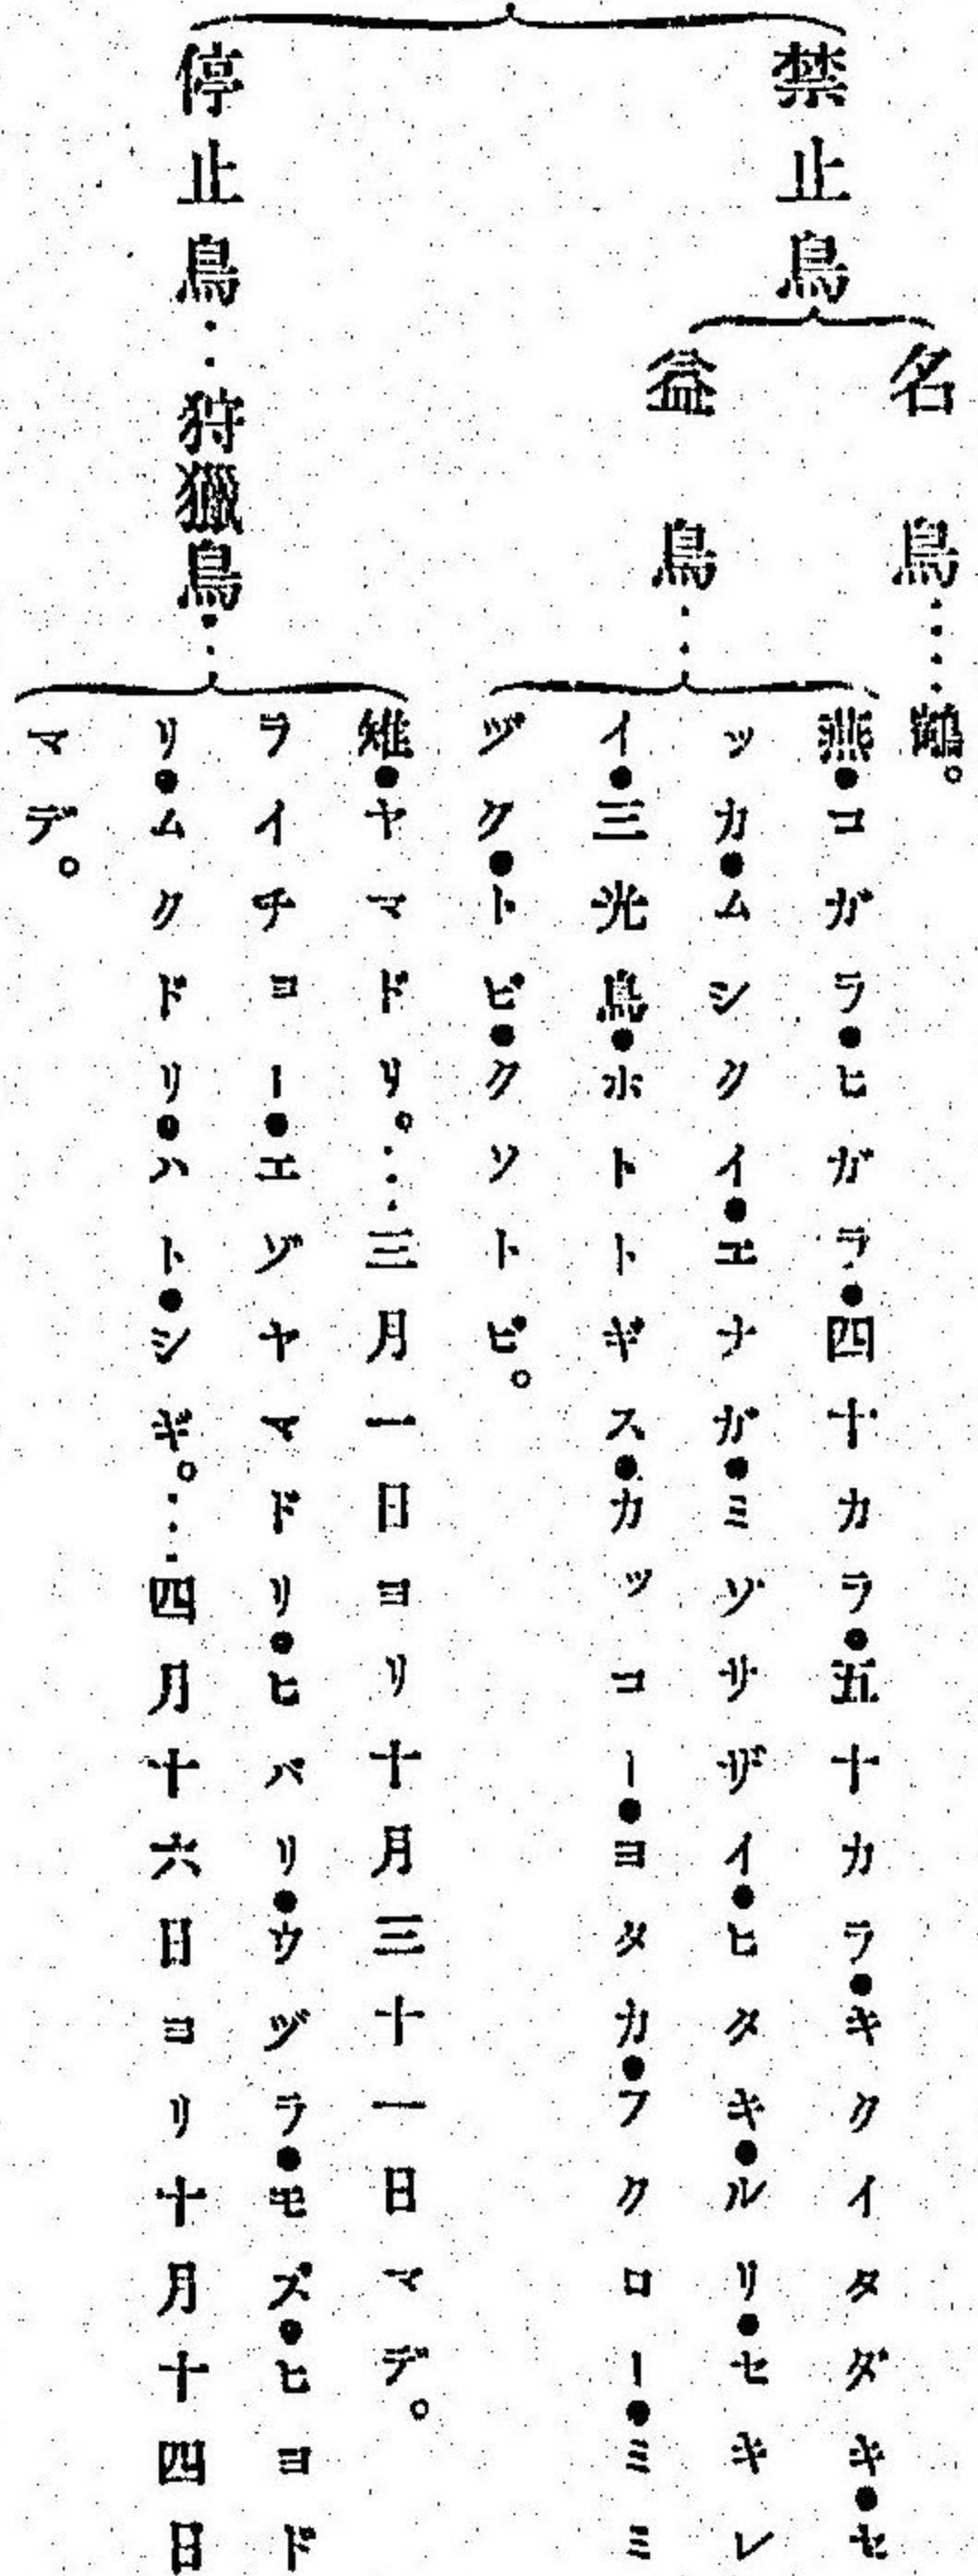 禁止鳥
名鳥……鶴。
益鳥……
燕●コガラ●ヒガラ●四十カラ●五十カラ●キクイタダキ●セ
ッカ●ムシクイ●エナガ●ミソサザイ●ヒタキ●ルリ●セキレ
イ●三光鳥●ホトトギス●カッコー●ヨタカ●フクロー●ミミ
ヅク●トビ●クソトビ。
停止鳥……狩獵鳥……
雉●ヤマドリ。……三月一日ヨリ十月三十一日マデ。
ライチョー●エゾヤマドリ●ヒバリ●ウヅラ●モズ●ヒヨド
リ●ムクドリ●ハト●シギ。……四月十六日ヨリ十月十四日
マデ。